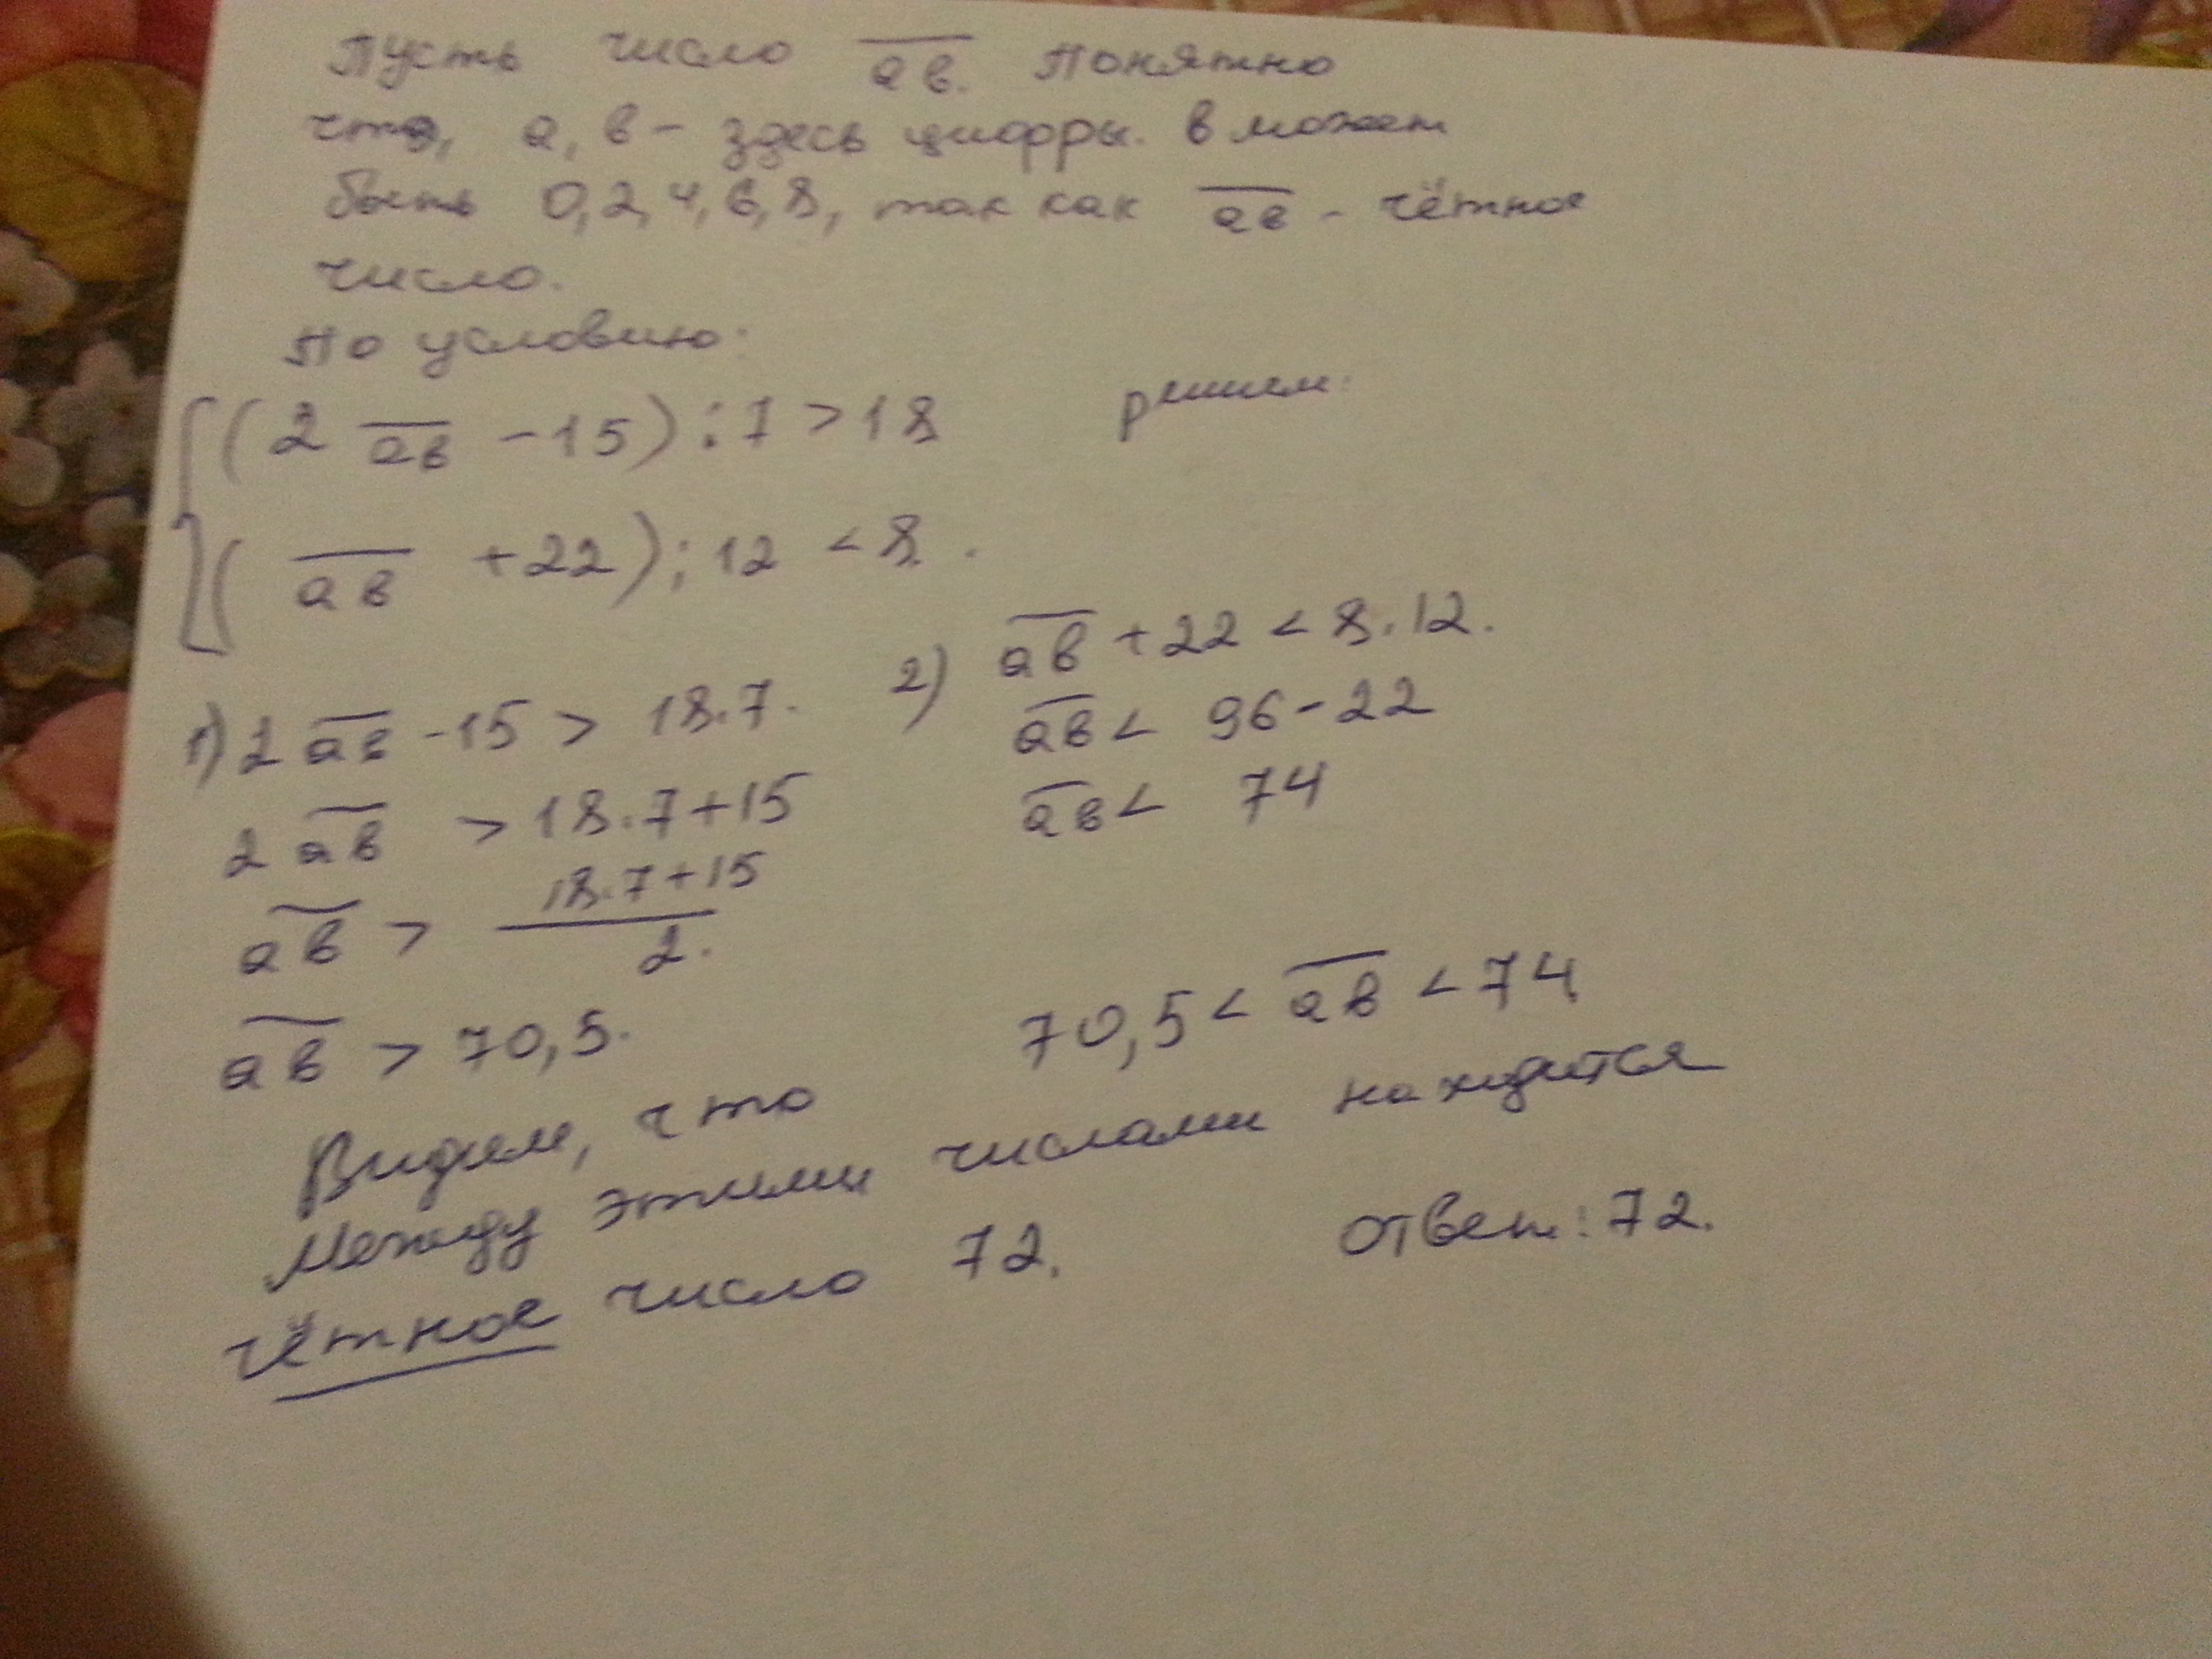 Пусть число a̅в̅. Понятно
что, а, в - здесь цифры. в может
быть 0,2,4,6,8, так как a̅в̅ - чётное
число.
По условию:
{(2 a̅в̅ - 15) : 7 > 18
(a̅в̅ + 22) : 12 < 8.
решим:
1) 2 a̅в̅ - 15 > 18.7.
2 a̅в̅ > 18.7+15
a̅в̅ > (18.7+15)/2.
a̅в̅ > 70,5.
2) a̅в̅ + 22 < 8.12.
a̅в̅ < 96-22
a̅в̅ < 74
Видим, что 70,5 < a̅в̅ < 74
Между этими числами находится
чётное число 72. Ответ: 72.